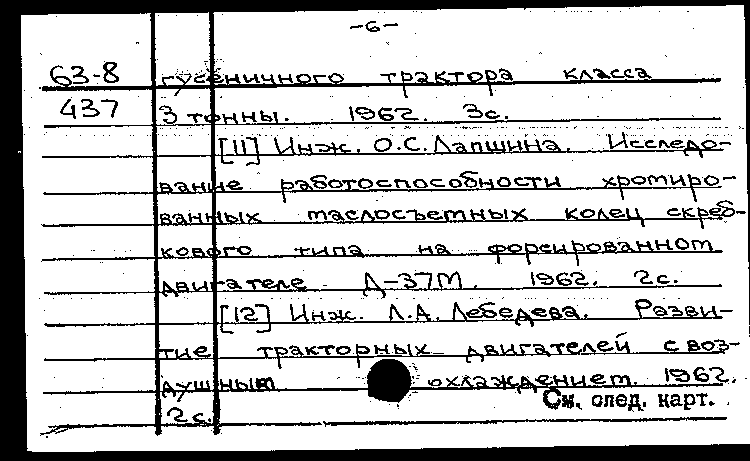 -6-
63-8 гусеничного трактора класса
437 3 тонны. 1962. 3с.
[11] Инж. О.С.Лапшина. Исследо-
вание работоспособности хромиро-
ванных маслосъемных колец скреб-
кового типа на форсированном
двигателе Д-37М. 1962. 2с.
[12] Инж. Л.А.Лебедева. Разви-
тие тракторных двигателей с воз-
душным охлаждением. 1962.
См. след. карт.
2с.